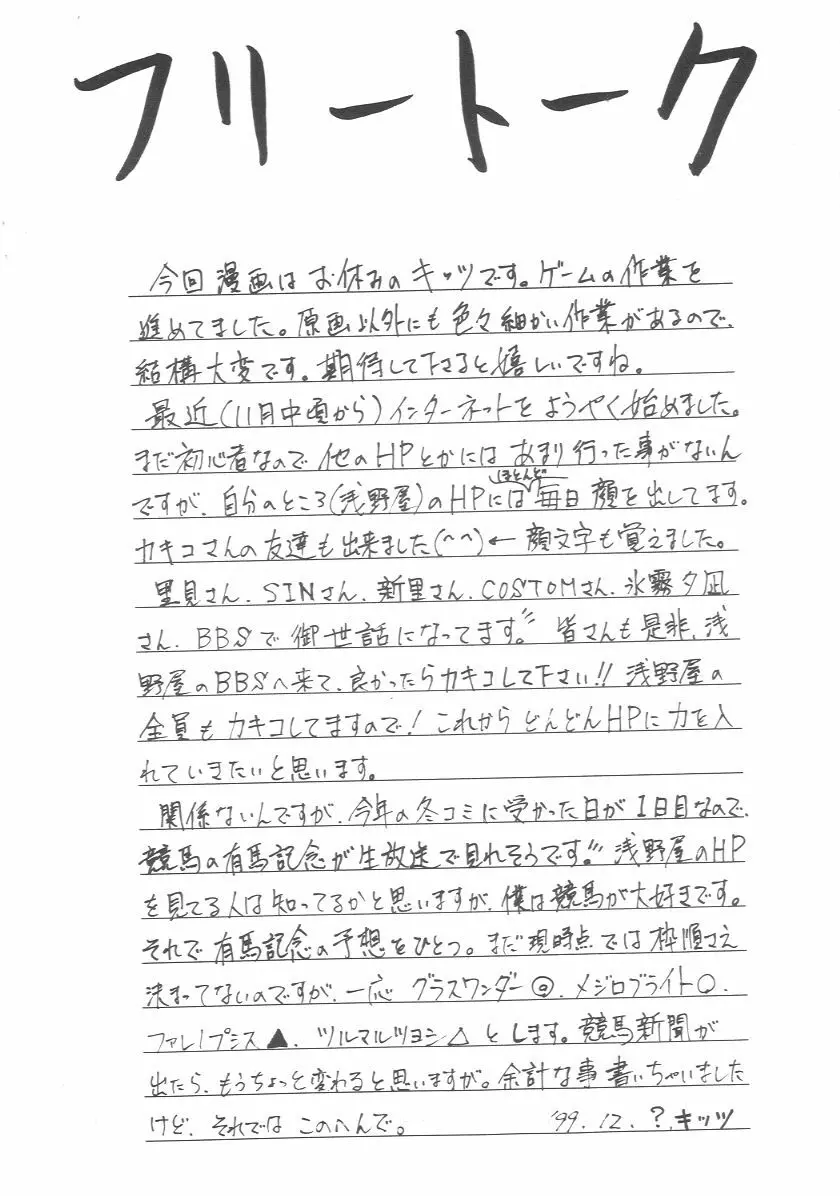 フリートーク
今回漫画はお休みのキッツです。ゲームの作業を
進めてました。原画以外にも色々細かい作業があるので、
結構大変です。期待して下さると嬉しいですね。
最近(11月中頃から)インターネットをようやく始めました。
まだ初心者なので他のHPとかにはあまり行った事がないん
ですが、自分のところ(浅野屋)のHPにはほとんど毎日顔を出してます。
カキコさんの友達も出来ました(^^)←顔文字も覚えました。
里見さん、SINさん、新里さん、COSTOMさん、氷霧夕凪
さん、BBSで御世話になってます。〃皆さんも是非、浅
野屋のBBSへ来て、良かったらカキコして下さい!!浅野屋の
全員もカキコしてますので!これからどんどんHPに力を入
れていきたいと思います。
関係ないんですが、今年の冬コミに受かった日が1日目なので、
競馬の有馬記念が生放送で見れそうです〃浅野屋のHP
を見てる人は知ってるかと思いますが、僕は競馬が大好きです。
それで有馬記念の予想をひとつ。まだ現時点では枠順さえ
決まってないのですが、一応グラスワンダー◎、メジロブライト○、
ファレノプシス▲、ツルマルツヨシ△とします。競馬新聞が
出たら、もうちょっと変わると思いますが。余計な事書いちゃいました
けど、それではこのへんで。 '99.12.?.キッツ